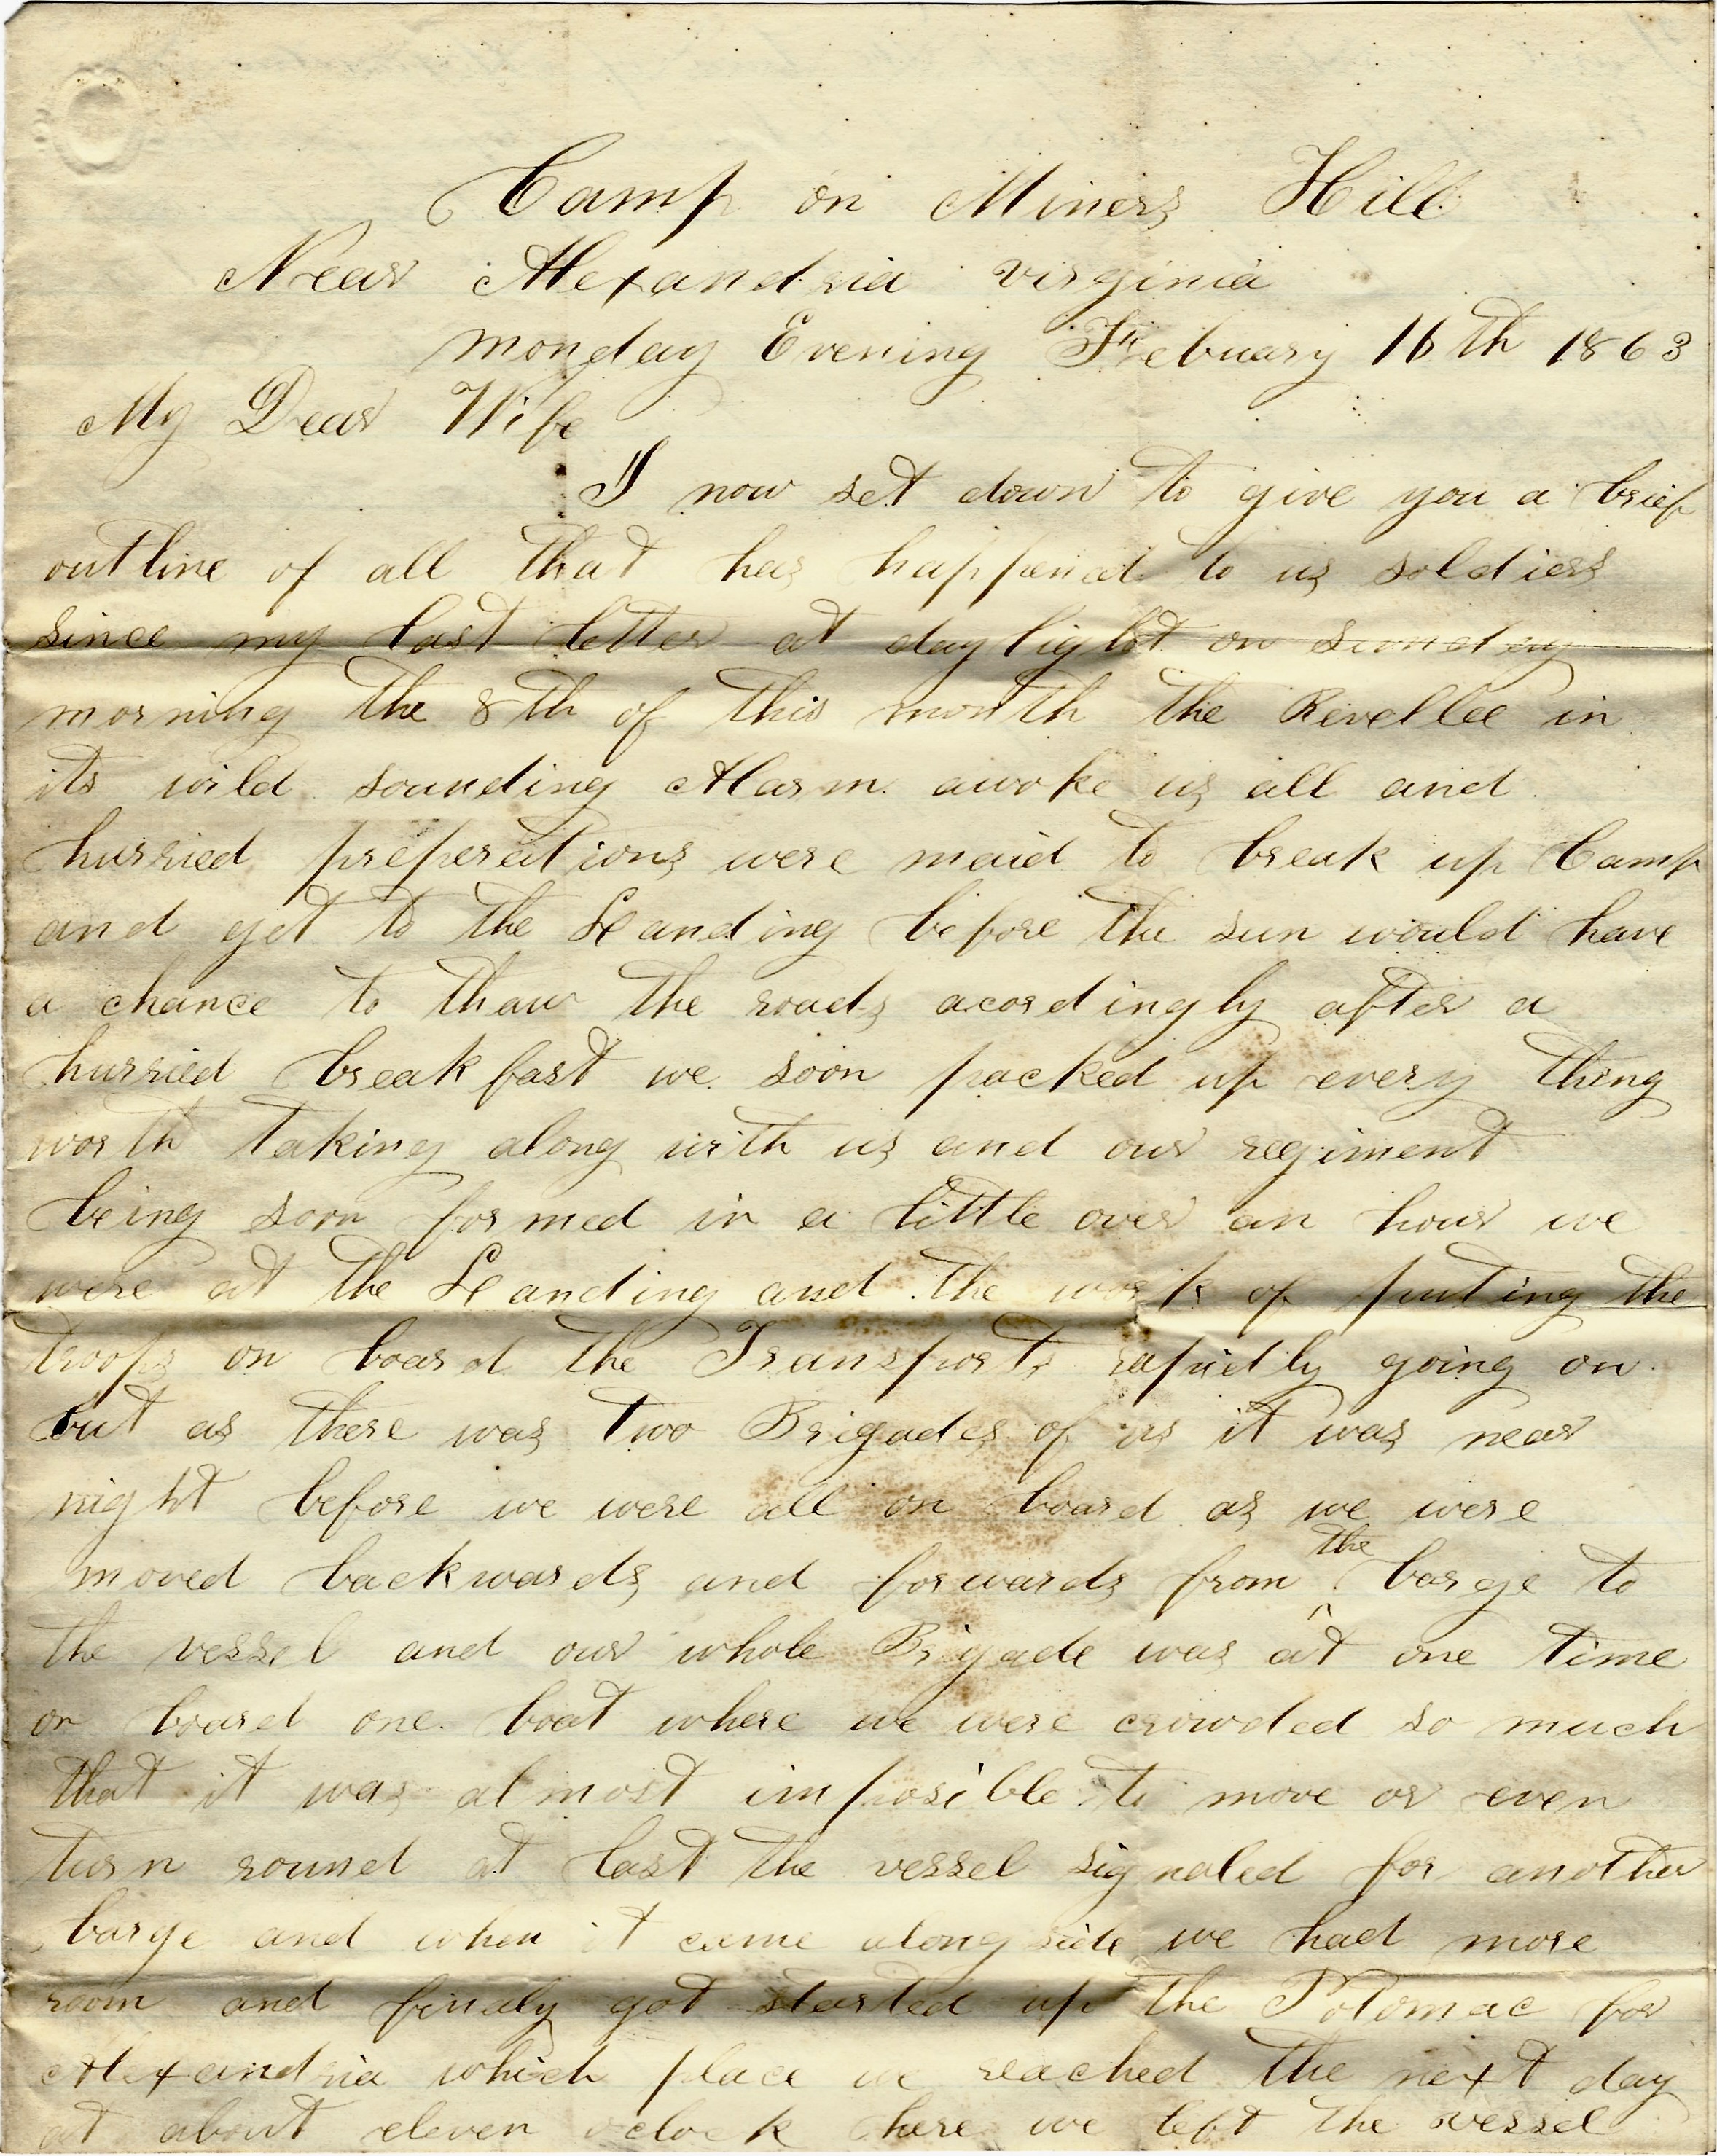 Camp on Miners Hill
Near Alexandria virginia
Monday Evening Febuary 16th 1863
My Dear Wife
I now set down to give you a brief
outline of all that has happened to us soldiers
since my last letter at daylight on sunday
morning the 8th of this month the Revellee in
its wild sounding Alarm awoke us all and
hurried preperations were maid to break up Camp
and get to the Leanding before the sun would have
a chance to thaw the roads acordingly after a
hurried breakfast we soon packed up every thing
worth taking along with us and our regiment
being soon formed in a little over an hour we
were at the Leanding and the work of puting the
troops on board the Transports rapidly going on
but as there was two Brigades of us it was near
night before we were all on board as we were
moved backwards and forwards from the barge to
the vessel and our whole Brigade was at one time
on board one boat where we were crowded so much
that it was almost imposible to move or even
turn round at last the vessel signaled for another
barge and when it came along side we had more
room and finaly got started up the Potomac for
Alexandria which place we reached the next day
at about eleven oclock here we left the vessel